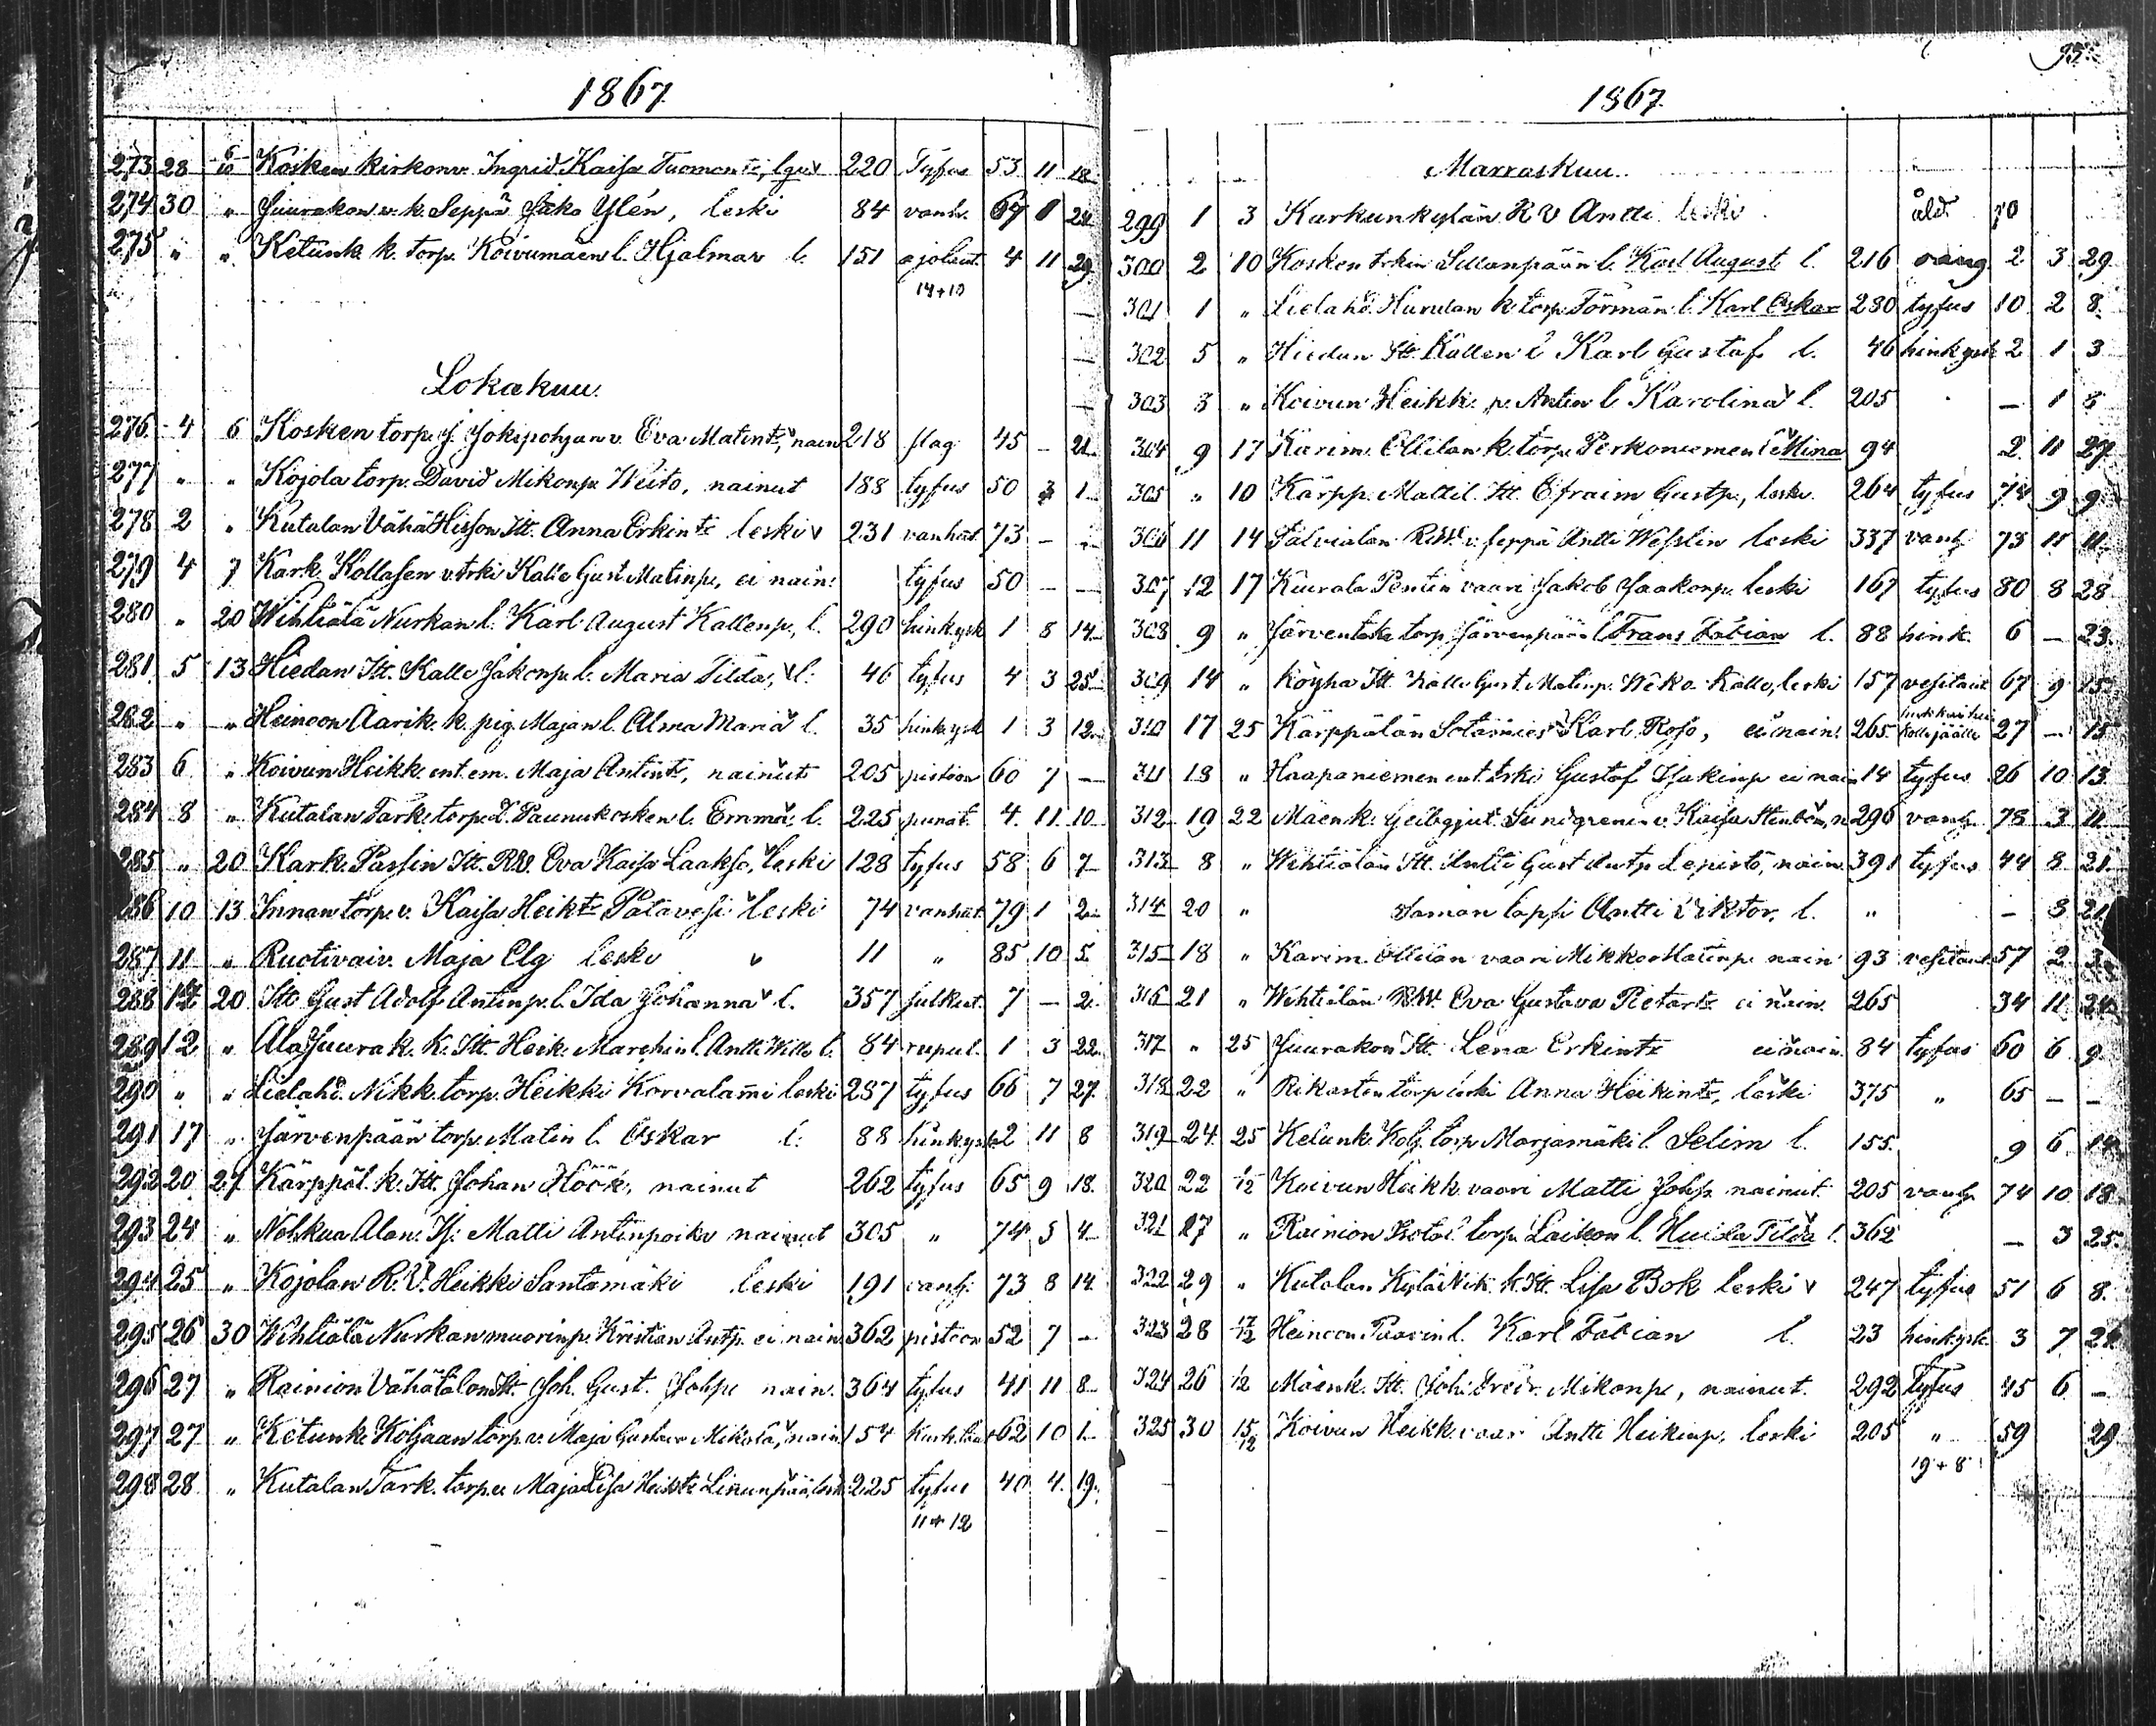 1867
273 28 6/10 Kosken kirkonv. Ingrid Kaisa Tuomant:, 220 Tyfus 53 11 18
274 30 " Juurakon v. k. Seppä Jako Ylén, leski 84 vanh. 67 1 24
275 " " Ketunk k. torp. Koivumäen l. Hjalmar l. 151 ajotaut. 4 11 29
14+10
Lokakuu.
276 4 6 Kosken torp. Jokipohjan v. Eva Matint:, nain 218 slag 45 – 21
277 " " Kojola torp. David Mikonp. Weito, nainut 188 tyfus 50 3 1
278 2 " Kutalan Vähä Hisson Itt. Anna Erkint: leski v 231 vanhat. 73 –
279 4 7 Kark. Kollasen v. trki Kalle Gust Matinp., ei nain: tyfus 50 – –
280 " 20 Wihtiälä Nurkan l. Karl August Kallenp., l. 290 hinkysk 1 8 14
281 5 13 Hiedan Itt. Kalle Jakonp. l. Maria Tilda, v l: 46 tyfus 4 3 25
282 " " Heinoon Aarik. k. pig. Majan l. Alma Maria v l. 35 hinkysk 1 3 12
283 6 " Koivun Heikk. ent. em. Maja Antint:, nainut 205 pistoon 60 7 –
284 8 " Kutalan Tark. torp. Paunukosken l. Emma: l. 225 punat. 4 11 10
285 " 20 Kark. Passin Itt. RW. Eva Kaisa Laakso, leski 128 tyfus 58 6 7
286 10 13 Innan torp. v. Kaisa Heikt: Palavesi leski 74 vanhat 79 1 2
287 11 " Ruotivaiv. Maja Elg leski v 11 " 85 10 5
288 20 Itt Gust Adolf Antinp. l. Ida Johanna v l. 357 julkut. 7 – 2
289 12 " Ala Juurak. k. Itt. Heik. Marehin l. Antti Wille l. 84 rupul. 1 3 22
290 " " Lielahd. Nikk. torp. Heikki Korvalammi leski 287 tyfus 66 7 27
291 17 " Järvenpään torp. Matin l. Oskar l: 88 hinkysk 2 11 8
292 20 27 Kärppäl. k. Itt. Johan Höök, nainut 262 tyfus 65 9 18
293 24 " Nohkua Alan. Matti Antinpoika nainut 305 " 74 3 4
294 25 " Kojolan R. V. Heikki Santamäki leski 191 vanh: 73 8 14
295 26 30 Wihtiälä Nurkan muorinp. Kristian Antp. ei nain 362 pistoon 52 7 –
296 27 " Rainion Vähätalon Itt. Joh. Gust. Johp. nain. 364 tyfus 41 11 8
297 27 " Ketunk. Koljaan torp. v. Maja Gustava Mikola, nain 154 62 10 1
298 28 " Kutalan Tark. torp. Maja Lisa Heikt: Linunpää, lesk 225 tyfus 40 4 19
11+12
95
1867
Marraskuu.
299 1 3 Karkunkylän R V Antti leski åld 70
300 2 10 Kosken trkin Sillanpään l. Karl August l. 216 2 3 29
301 1 " Lielahd. Hurulan k. torp. Törmän l. Karl Oskar 280 tyfus 10 2 8
302 5 " Hiedan Itt. Kallen l Karl Gustaf l. 46 hinkysk 2 1 3
303 3 " Koivun Heikk. p. Antin l. Karolina v l. 205 – 1 8
304 9 17 Karim. Ollilan k. torp. Perkoniemen l. Mina 94 2 11 27
305 " 10 Kärpp. Mattil. Itt. Efraim Gustp., leski. 264 tyfus 74 9 9
306 11 14 Talvialan RW. v. seppä Antti Wesslin leski 337 vanh 73 11 11
307 12 17 Kuurala Pentin vaari Jakob Jaakonp. leski 167 tyfus 80 8 28
308 9 " Järventaka torp. Järvenpään l Frans Fabian l. 88 hink. 6 – 23
309 14 " Köyhä Itt. Kalle Gust. Matinp. Weko-Kalle, leski 157 vesitaut 67 9 15
310 17 25 Kärppälän Sotamies Karl Roso, ei nain: 265 27 – 15
311 18 " Haapaniemen ent. trki Gustaf Isakinp ei nain 14 tyfus 26 10 13
312 19 22 Mäenk. Sundgrenin v. Kaisa 296 vanh 78 3 11
313 8 " Wihtiälän Itt. Antti Gust Antp Lepistö, nain 391 tyfus 44 8 21
314 20 " Saman lapsi Antti Viktor, l. " – 3 21
315 18 " Karim. Ollilan vaari Mikko Matinp. nain 93 vesitaut 57 2 3
316 21 " Wihtiälän RW. Eva Gustava Pietart: ei nain. 265 34 11 24
317 " 25 Juurakon Itt. Lena Erkint: ei nain. 84 tyfus 60 6 9
318 22 " Rikasten torp. leski Anna Heikint:, leski 375 " 65 – –
319 24 25 Ketunk. Kolj. torp. Marjamäki l. Selim l. 155. 9 6 14
320 22 1/12 Koivun Heikk. vaari Matti Johp. nainut. 205 vanh 74 10 18
321 27 " Rainion torp. Laikon l. Hulda Tilda l. 362 – 3 25
322 29 " Kutalan Kylä Nik. k. Itt. Lisa Bok leski v 247 tyfus 51 6 8
323 28 17/12 Heinoon Paavin l. Karl Fabian l. 23 hinkysk 3 7 21
324 26 1/12 Mäenk. Itt. Joh. Fredr. Mikonp., nainut. 292 Tyfus 45 6 –
325 30 15/12 Koivun Heikk. vaari Antti Heikinp. leski 205 " 59 29
19+8